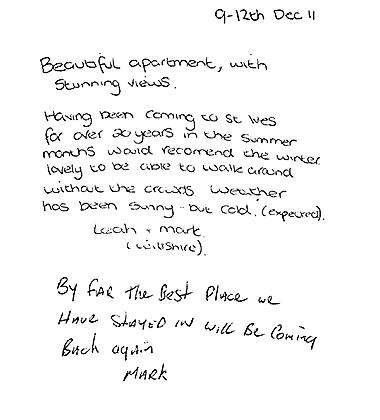 9-12th Dec 11
Beautiful apartment, with
stunning views.
Having been coming to St Ives
for over 20 years in the summer
months would recomend the winter
lovely to be able to walk around
without the crowds weather
has been sunny - but cold. (expected).
Leah + Mark.
(Wiltshire).
By FAR The Best Place we
HAVE STAYED IN will Be Coming
Back again
MARK